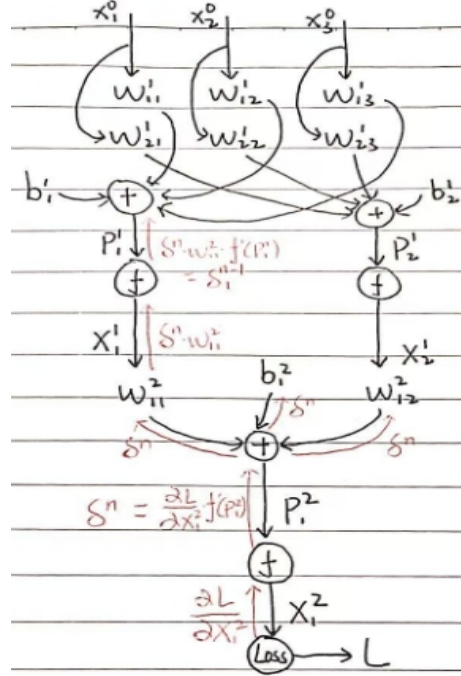 x₁⁰ x₂⁰ x₃⁰
w₁₁¹ w₁₂¹ w₁₃¹
w₂₁¹ w₂₂¹ w₂₃¹
b₁¹ + + b₂¹
P₁¹ δⁿ·w₁₁²·f'(P₁¹) P₂¹
= δ₁ⁿ⁻¹
f f
X₁¹ δⁿ·w₁₁² X₂¹
b₁² 
w₁₁² δⁿ w₁₂²
δⁿ + δⁿ
δⁿ = ∂L/∂X₁² f'(P₁²) P₁²
f
∂L/∂X₁² X₁²
Loss L